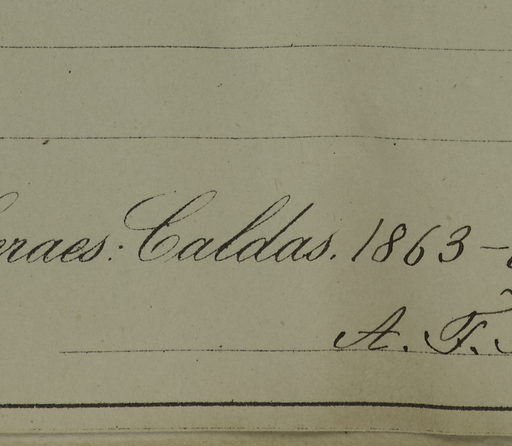 eraes: Caldas. 1863-
A. F.